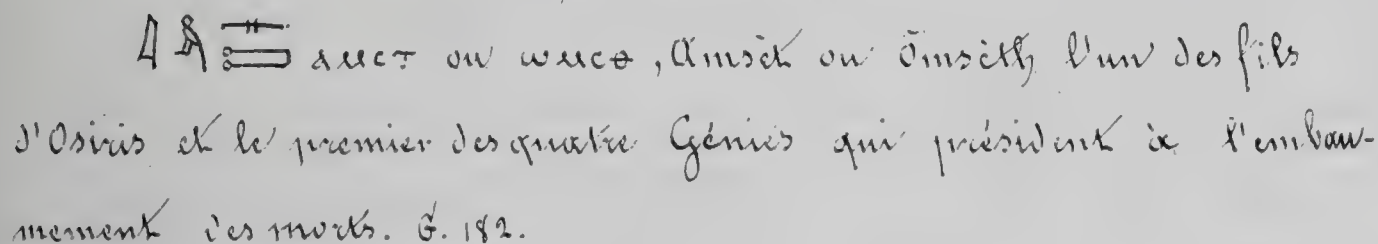 ⲁⲙⲥⲧ ou ⲱⲙⲥⲑ, Amsèt ou Omsèth, l'un des fils
d'Osiris et le premier des quatre Génies qui président à l'embau-
mement des morts. G. 182.